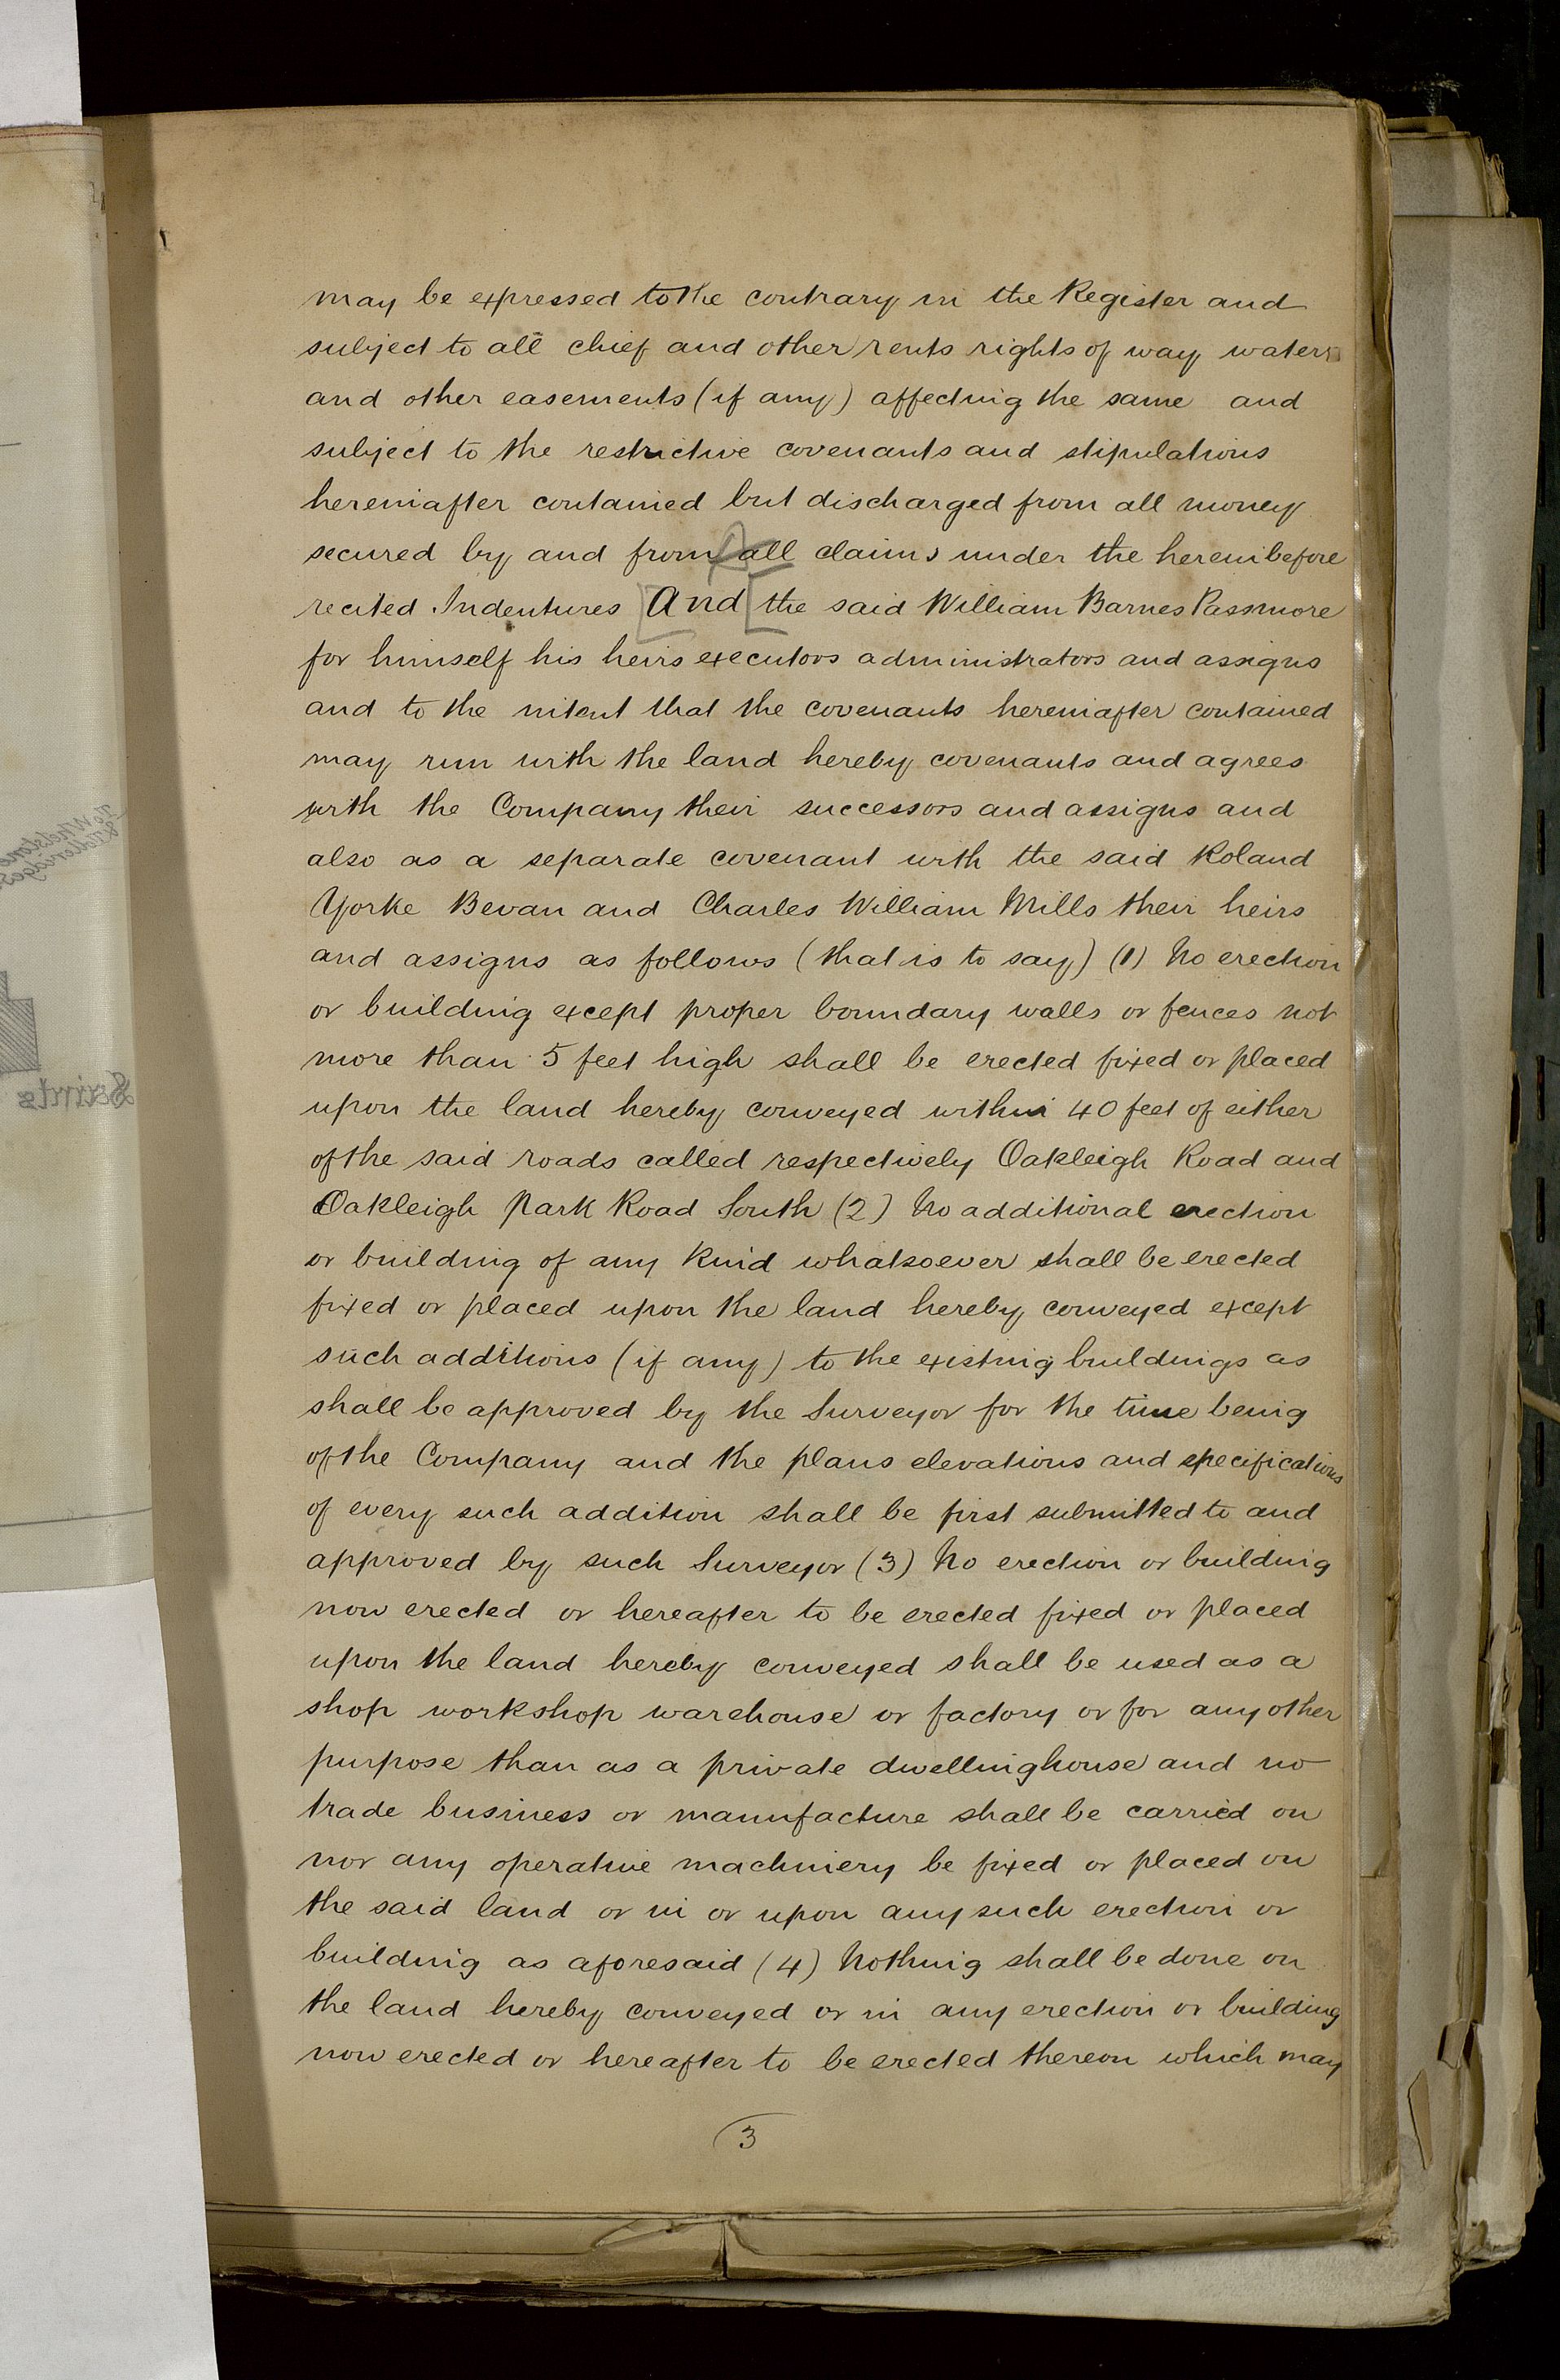 may be expressed to the contrary in the Register and
subject to all chief and other rents rights of way water
and other easements (if any) affecting the same and
subject to the restrictive covenants and stipulations
hereinafter contained but discharged from all money
secured by and from all claims under the hereinbefore
recited Indentures [And [the said William Barnes Passmore
for himself his heirs executors administrators and assigns
and to the intent that the covenants hereinafter contained
may run with the land hereby covenants and agrees
with the Company their successors and assigns and
also as a separate covenant with the said Roland
Yorke Bevan and Charles William Mills their heirs
and assigns as follows (that is to say) (1) No erection
or building except proper boundary walls or fences not
more than 5 feet high shall be erected fixed or placed
upon the land hereby conveyed within 40 feet of either
of the said roads called respectively Oakleigh Road and
Oakleigh Park Road South (2) No additional erection
or building of any kind whatsoever shall be erected
fixed or placed upon the land hereby conveyed except
such additions (if any) to the existing buildings as
shall be approved by the Surveyor for the time being
of the Company and the plans elevations and specifications
of every such addition shall be first submitted to and
approved by such Surveyor (3) No erection or building
now erected or hereafter to be erected fixed or placed
upon the land hereby conveyed shall be used as a
shop workshop warehouse or factory or for any other
purpose than as a private dwellinghouse and no
trade business or manufacture shall be carried on
nor any operative machinery be fixed or placed on
the said land or in or upon any such erection or
building as aforesaid (4) Nothing shall be done on
the land hereby conveyed or in any erection or building
now erected or hereafter to be erected thereon which may
3
Saints